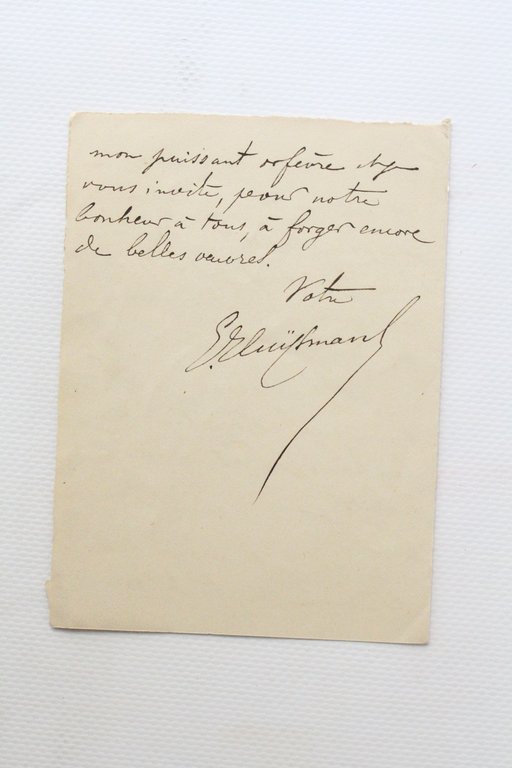 mon puissant orfèvre et je
vous invite, pour notre
bonheur à tous, à forger encore
de belles œuvres.
Votre
G. Huÿsmans